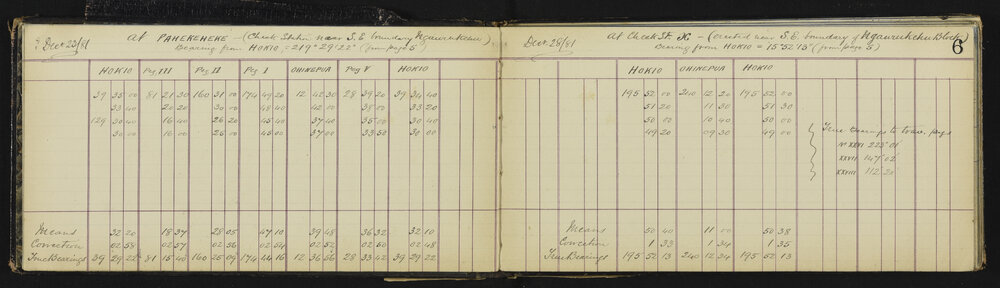 Decr 23/81 At PAHEKEHEKE - (Check Station near S.E. boundary Ngaurukehu)
Bearing from HOKIO = 219° 29' 22" (from page 5)
HOKIO Peg III Peg II Peg I OHINEPUA Peg V HOKIO
39 35 00 81 21 30 160 31 00 174 49 20 12 42 30 28 39 20 39 34 40
33 40 20 20 30 00 48 40 42 00 38 00 33 20
129 30 40 16 40 26 20 45 40 37 40 35 00 30 40
30 00 16 00 26 00 45 00 37 00 33 50 30 00
Means 32 20 18 37 28 05 47 10 39 48 36 32 32 10
Correction 02 58 02 57 02 56 02 54 02 52 02 50 02 48
True Bearings 39 29 22 81 15 40 160 25 09 174 44 16 12 36 56 28 33 42 39 29 22
6
Decr 28/81 At Check St. K - (erected near S.E. boundary of Ngaurukehu Block)
Bearing from HOKIO = 15° 52' 13" (from page 5)
HOKIO OHINEPUA HOKIO
195 52 00 240 12 20 195 52 00
51 20 11 30 51 30
50 00 10 40 50 00
49 20 09 30 49 00
True bearings to trav. pegs
No XXVI 223° 01'
XXVII 147° 02'
XXVIII 112 20
Means 50 40 11 00 50 38
Correction 1 33 1 34 1 35
True Bearings 195 52 13 240 12 34 195 52 13